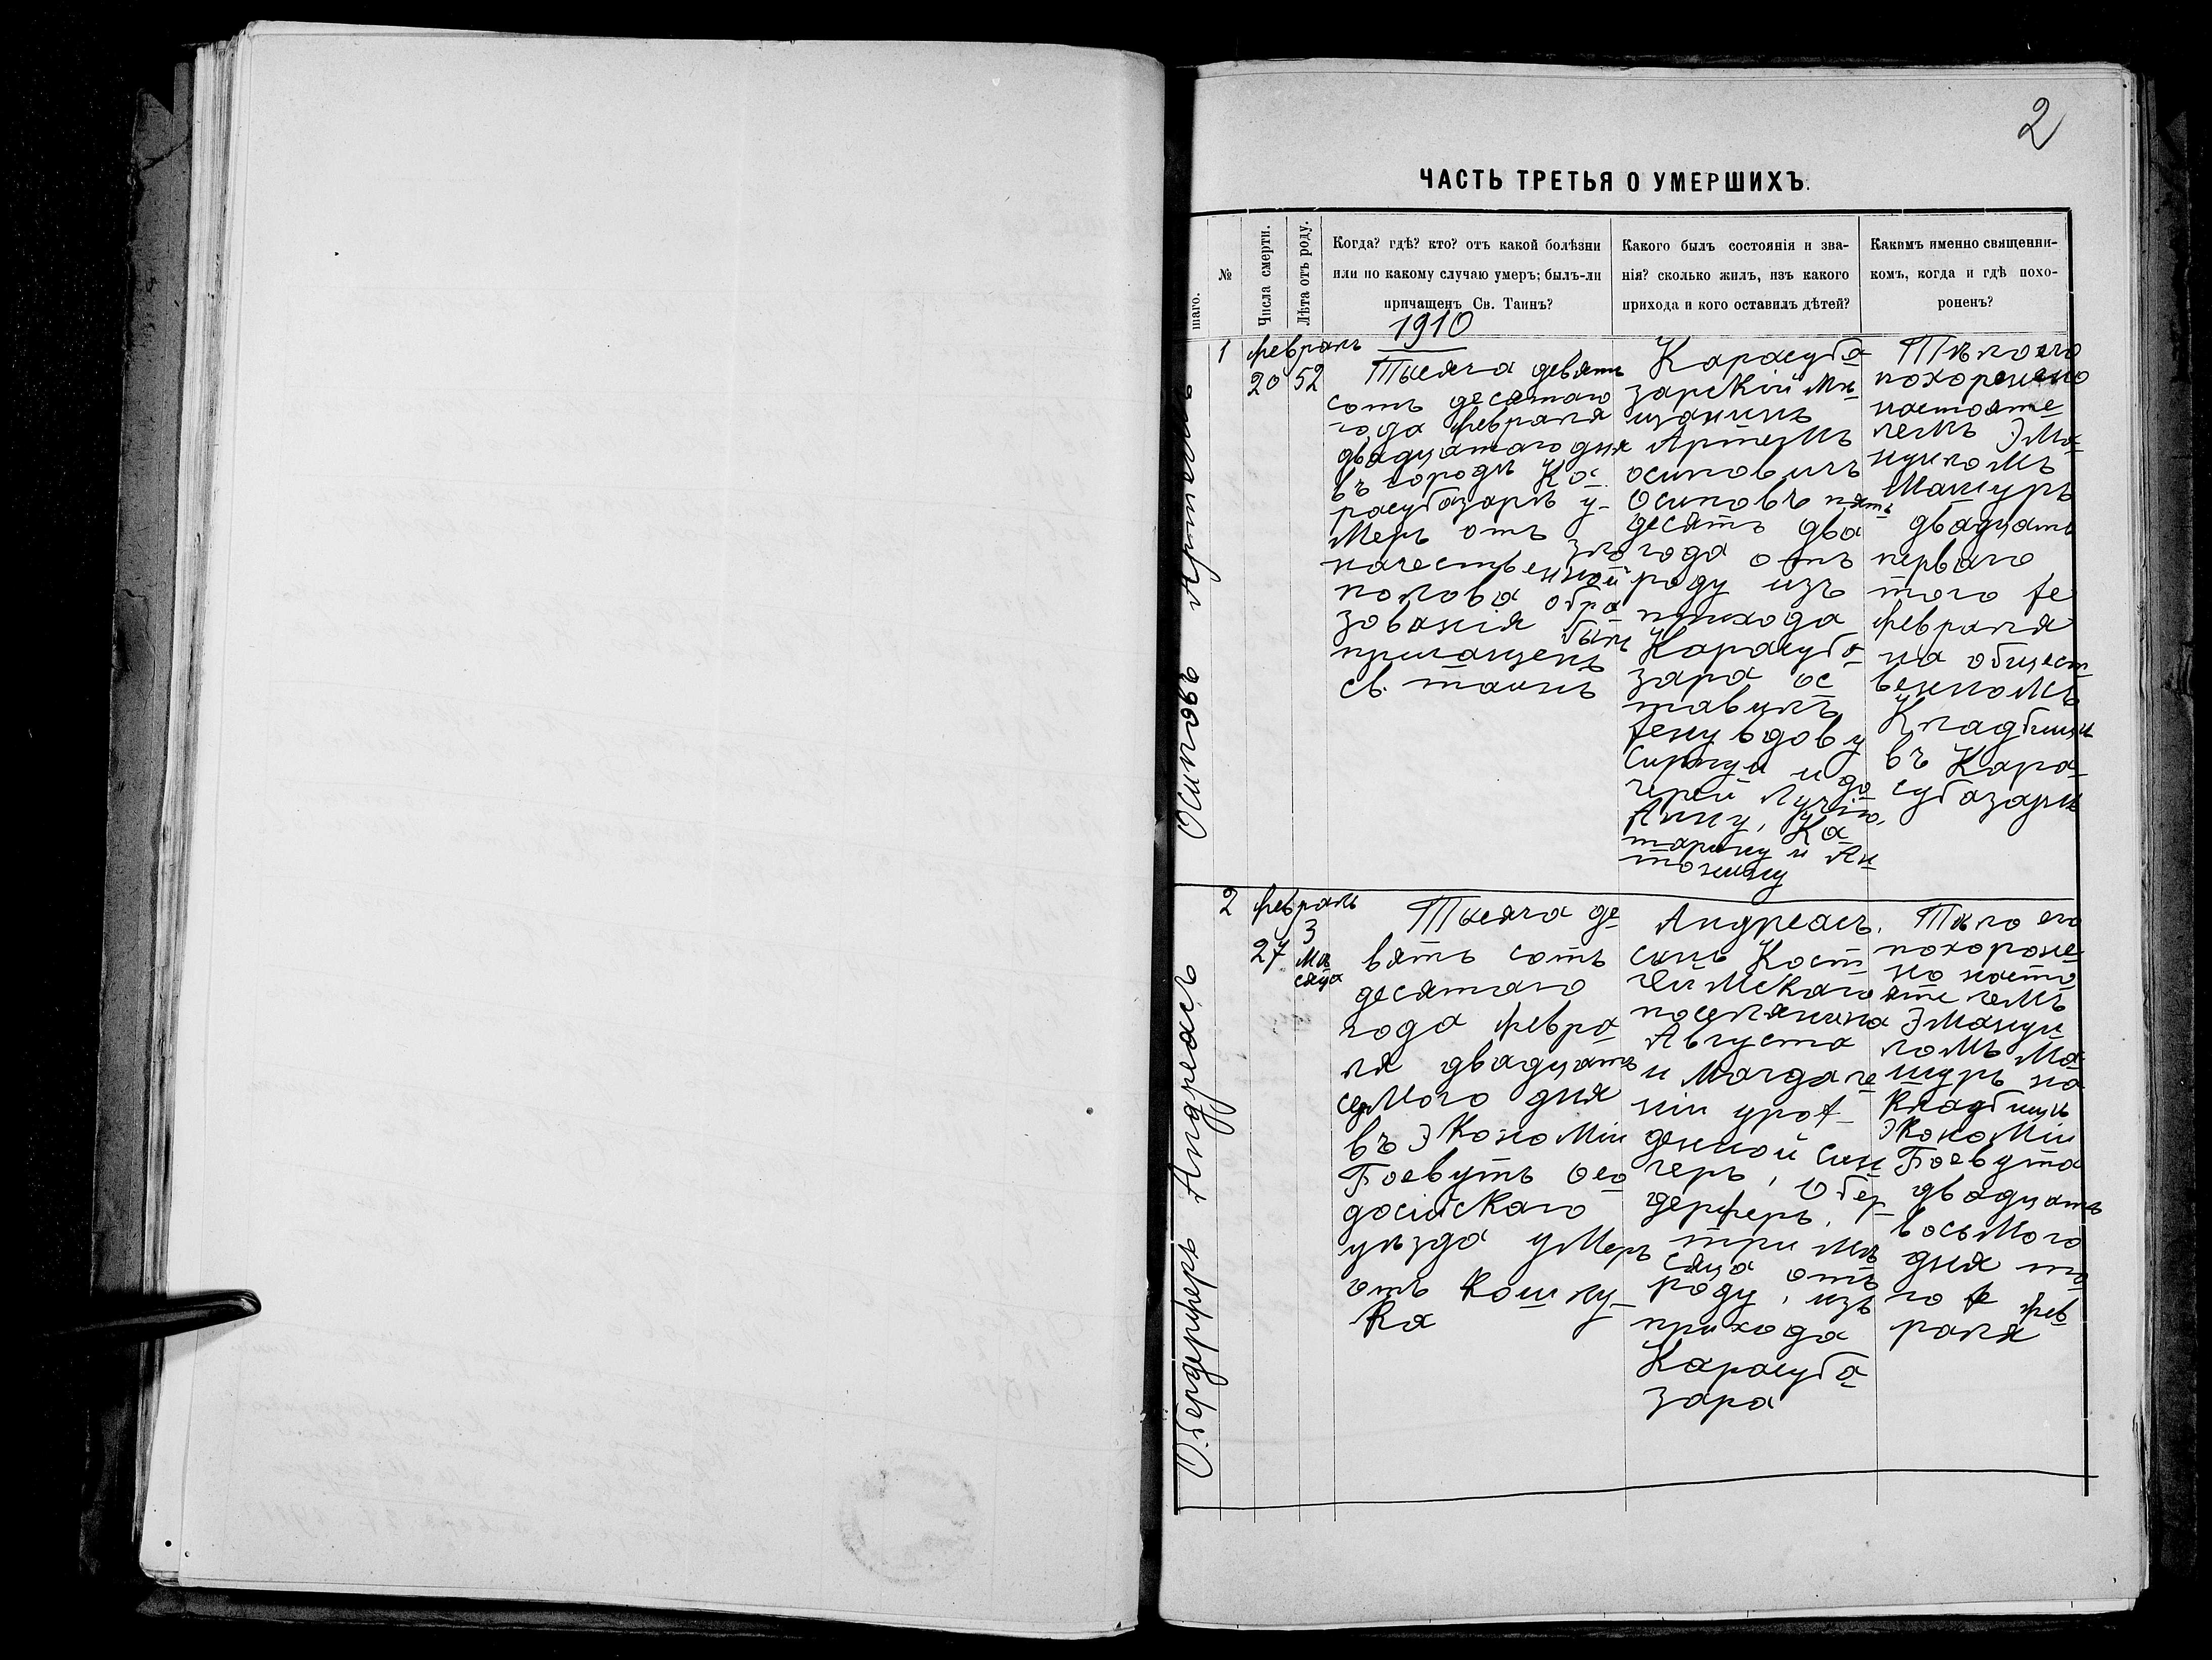 2
ЧАСТЬ ТРЕТЬЯ О УМЕРШИХЪ.
шаго.
№
Числа смерти.
Лѣта отъ роду.
Когда? гдѣ? кто? отъ какой болѣзни
или по какому случаю умеръ; былъ-ли
причащенъ Св. Таинъ?
Какого былъ состоянія и зва-
нія? сколько жилъ, изъ какого
прихода и кого оставилъ дѣтей?
Какимъ именно священни-
комъ, когда и гдѣ похо-
роненъ?
1910
Осиповъ Артемъ
1
февраль
20
52
Тысяча девять
сотъ десятаго
года февраля
двадцатаго дня
въ городѣ Ка
расубазарѣ у-
меръ отъ
зло
качественной
полова обра
зованія
былъ
причащенъ
св. таинъ
Карасуба
зарскій мѣ
щанинъ
Артемъ
осиповичъ
Осиповъ пять
десятъ два
года отъ
роду изъ
прихода
Карасуба
зара ос
тавилъ
жену вдову
и до
черей Лучію,
Анну, Ка
тарину и Ан
тонину
Тѣло его
похоронено
настояте
лемъ Эма-
нуиломъ
Машуръ
двадцать
перваго
того же
февраля
на общест
венномъ
Кладбищѣ
въ Кара-
субазарѣ
Обердерферъ Андреасъ
2
февраль
27
3
мѣ
сяца
Тысяча де
вять сотъ
десятаго
года февра
ля двадцать
седмого дня
въ Экономіи
Боевутъ Ѳео
досійскаго
уѣзда умеръ
отъ Кошлу-
ка
Андреасъ,
сынъ Кост
поселянина
Августа
и Магдале
ніи урож-
денной Зин
геръ, Обер
дерферъ,
три мѣ
сяца отъ
роду, изъ
прихода
Карасуба
зара
Тѣло его
похороне
но насто
ятелемъ
Эмануи
ломъ Ма
шуръ на
Кладбищѣ
Экономіи
Боевута
двадцать
восьмого
дня то
го же фев
раля